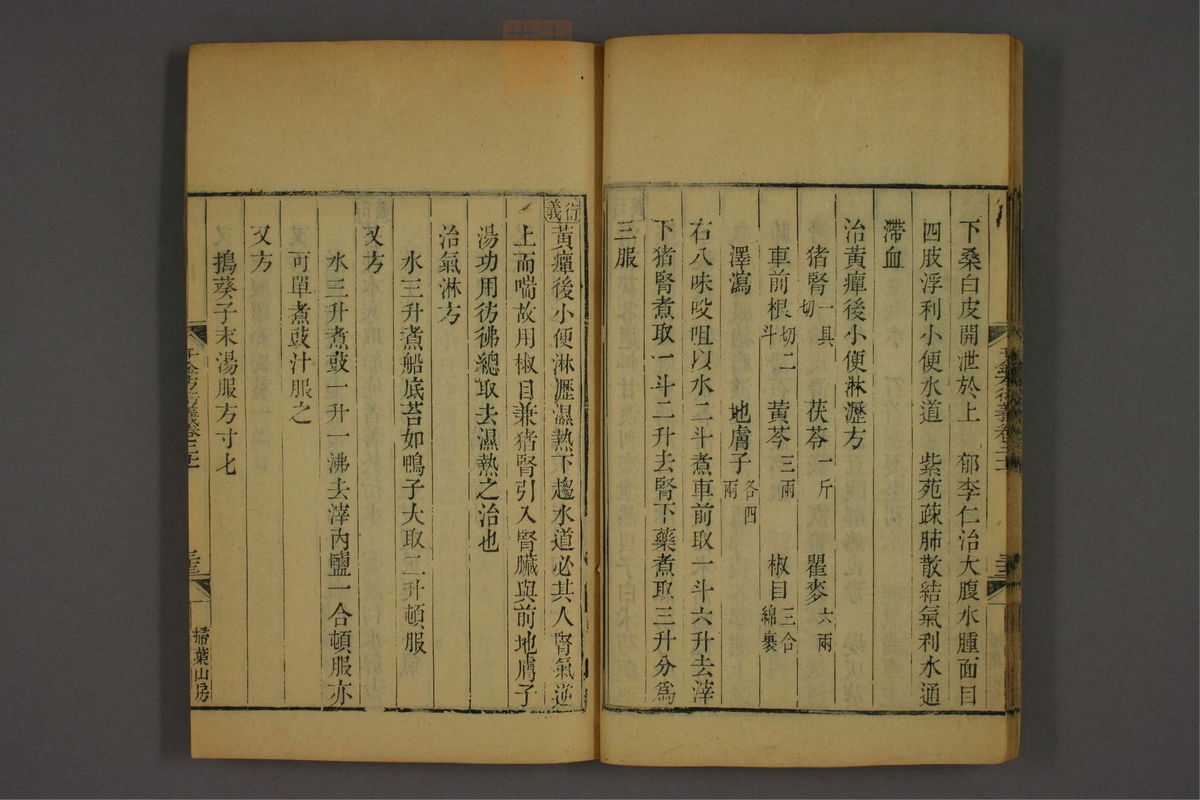 下桑白皮開泄於上　郁李仁治大腹水腫面目
四肢浮利小便水道　紫苑疎肺散結氣利水通
滯血
治黃癉後小便淋瀝方
猪腎一具切　茯苓一斤　瞿麥六兩
車前根切二斗　黃芩三兩　椒目三合綿裹
澤瀉　地膚子各四兩
右八味㕮咀以水二斗煮車前取一斗六升去滓
下猪腎煮取一斗二升去腎下藥煮取三升分爲
三服
衍義黃癉後小便淋瀝濕熱下趨水道必其人腎氣逆
上而喘故用椒目兼猪腎引入腎臟與前地膚子
湯功用彷彿總取去濕熱之治也
治氣淋方
水三升煮船底苔如鴨子大取二升頓服
又方
水三升煮豉一升一沸去滓內鹽一合頓服亦
可單煮豉汁服之
又方
搗葵子末湯服方寸匕
千金方衍義卷二十一
掃葉山房